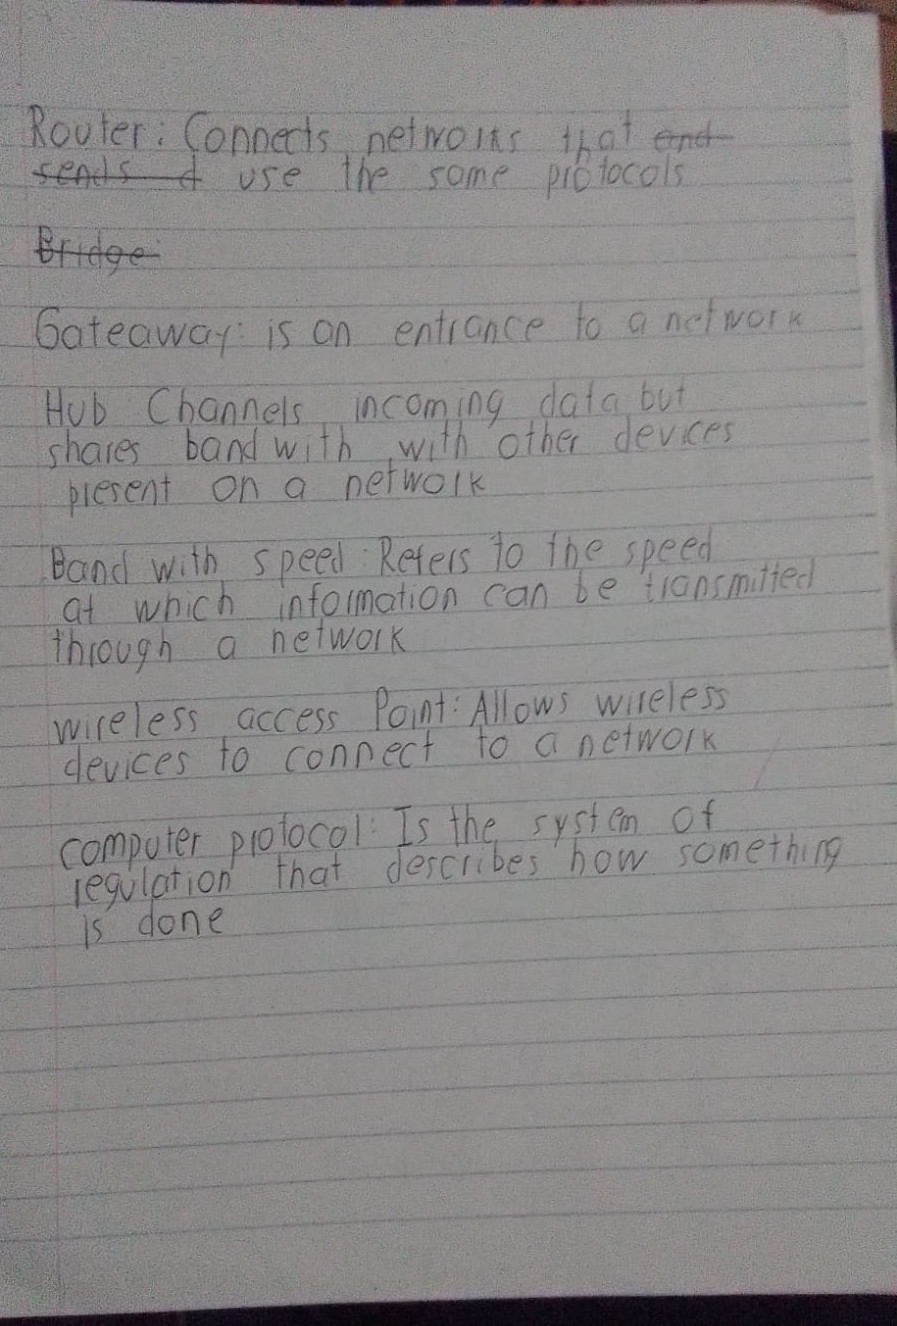 Router: Connects networks that and
sends d use the same protocols
Bridge
Gateaway: is an entrance to a network
Hub: Channels incoming data but
shares band with with other devices
present on a network
Band with speed: Refers to the speed
at which information can be transmitted
through a network
wireless access Point: Allows wireless
devices to connect to a network
computer protocol: Is the system of
regulation that describes how something
is done